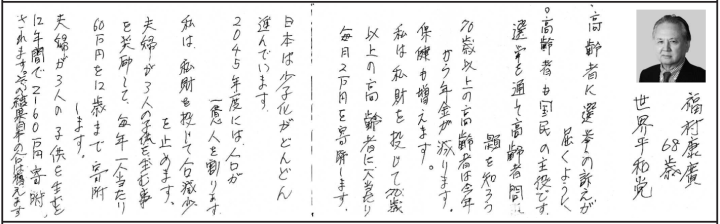 福村康廣
68歳
世界平和党
・高齢者に選挙の訴えが
届くよう、
。高齢者も国民の主役です。
選挙を通して高齢者問
題を知ろう
70歳以上の高齢者は今年
から年金が減ります。
保健も増えます。
私は私財を投じて70歳
以上の高齢者に1人当たり
毎月2万円を寄附します。
日本は少子化がどんどん
進んでいます。
2045年度には、人口が
一億人を割ります
私は、私財を投じて人口減少
を止めます。
夫婦が3人の子供を生む事
を奨励して、毎年一人当たり
60万円を12歳まで寄附
します。
夫婦が3人の子供を生むと
12年間で2160万円寄附
されます。その結果日本の人口は増えます